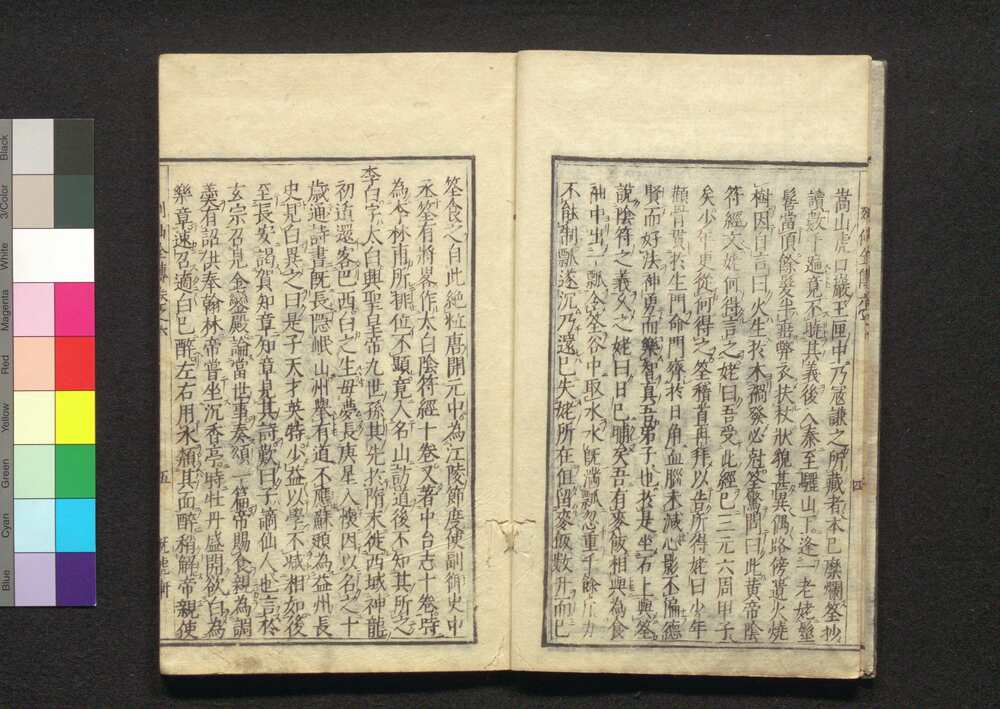 嵩山虎口巖玉匣中乃冦謙之所藏者本已糜爛筌抄
讀數千遍竟不曉其義後入秦至驪山下逢一老姥髽
髻當頂餘髮半垂弊衣扶杖狀貌甚異偶路傍遺火燒
樹因自言曰火生於木禍發必尅筌驚問曰此黃帝陰
符經文姥何得言之姥曰吾受此經已三元六周甲子
矣少年更從何得之筌稽首再拜以告所得姥曰少年
顴骨貫於生門命門齊於日角血腦未減心影不偏德
賢而好法神勇而樂智真吾弟子也於是坐石上與筌
說陰符之義久之姥曰日已晡矣吾有麥飯相與為食
袖中出一瓢令筌谷中取水水既滿瓢忽重千餘斤力
不能制瓢遂沉乃還已失姥所在但留麥飯數升而已
四
筌食之自此絕粒唐開元中為江陵節度使副御史中
丞筌有將略作太白陰符經十卷又著中台志十卷時
為李林甫所排位不顯竟入名山訪道後不知其所之
李白字太白興聖皇帝九世孫其先於隋末徙西域神龍
初遁還客巴西白之生母夢長庚星入懷因以名之十
歲通詩書既長隱岷山州舉有道不應蘇頲為益州長
史見白異之曰是子天才英特少益以學不減相如後
至長安謁賀知章知章見其詩歎曰子謫仙人也言於
玄宗召見金鑾殿論當世事奏頌一篇帝賜食親為調
羹有詔供奉翰林帝嘗坐沉香亭時牡丹盛開欲白為
樂章速召適白已醉左右用水頮其面醉稍解帝親使
五
Black
3/Color
White
Magenta
Red
Yellow
Green
Cyan
Blue